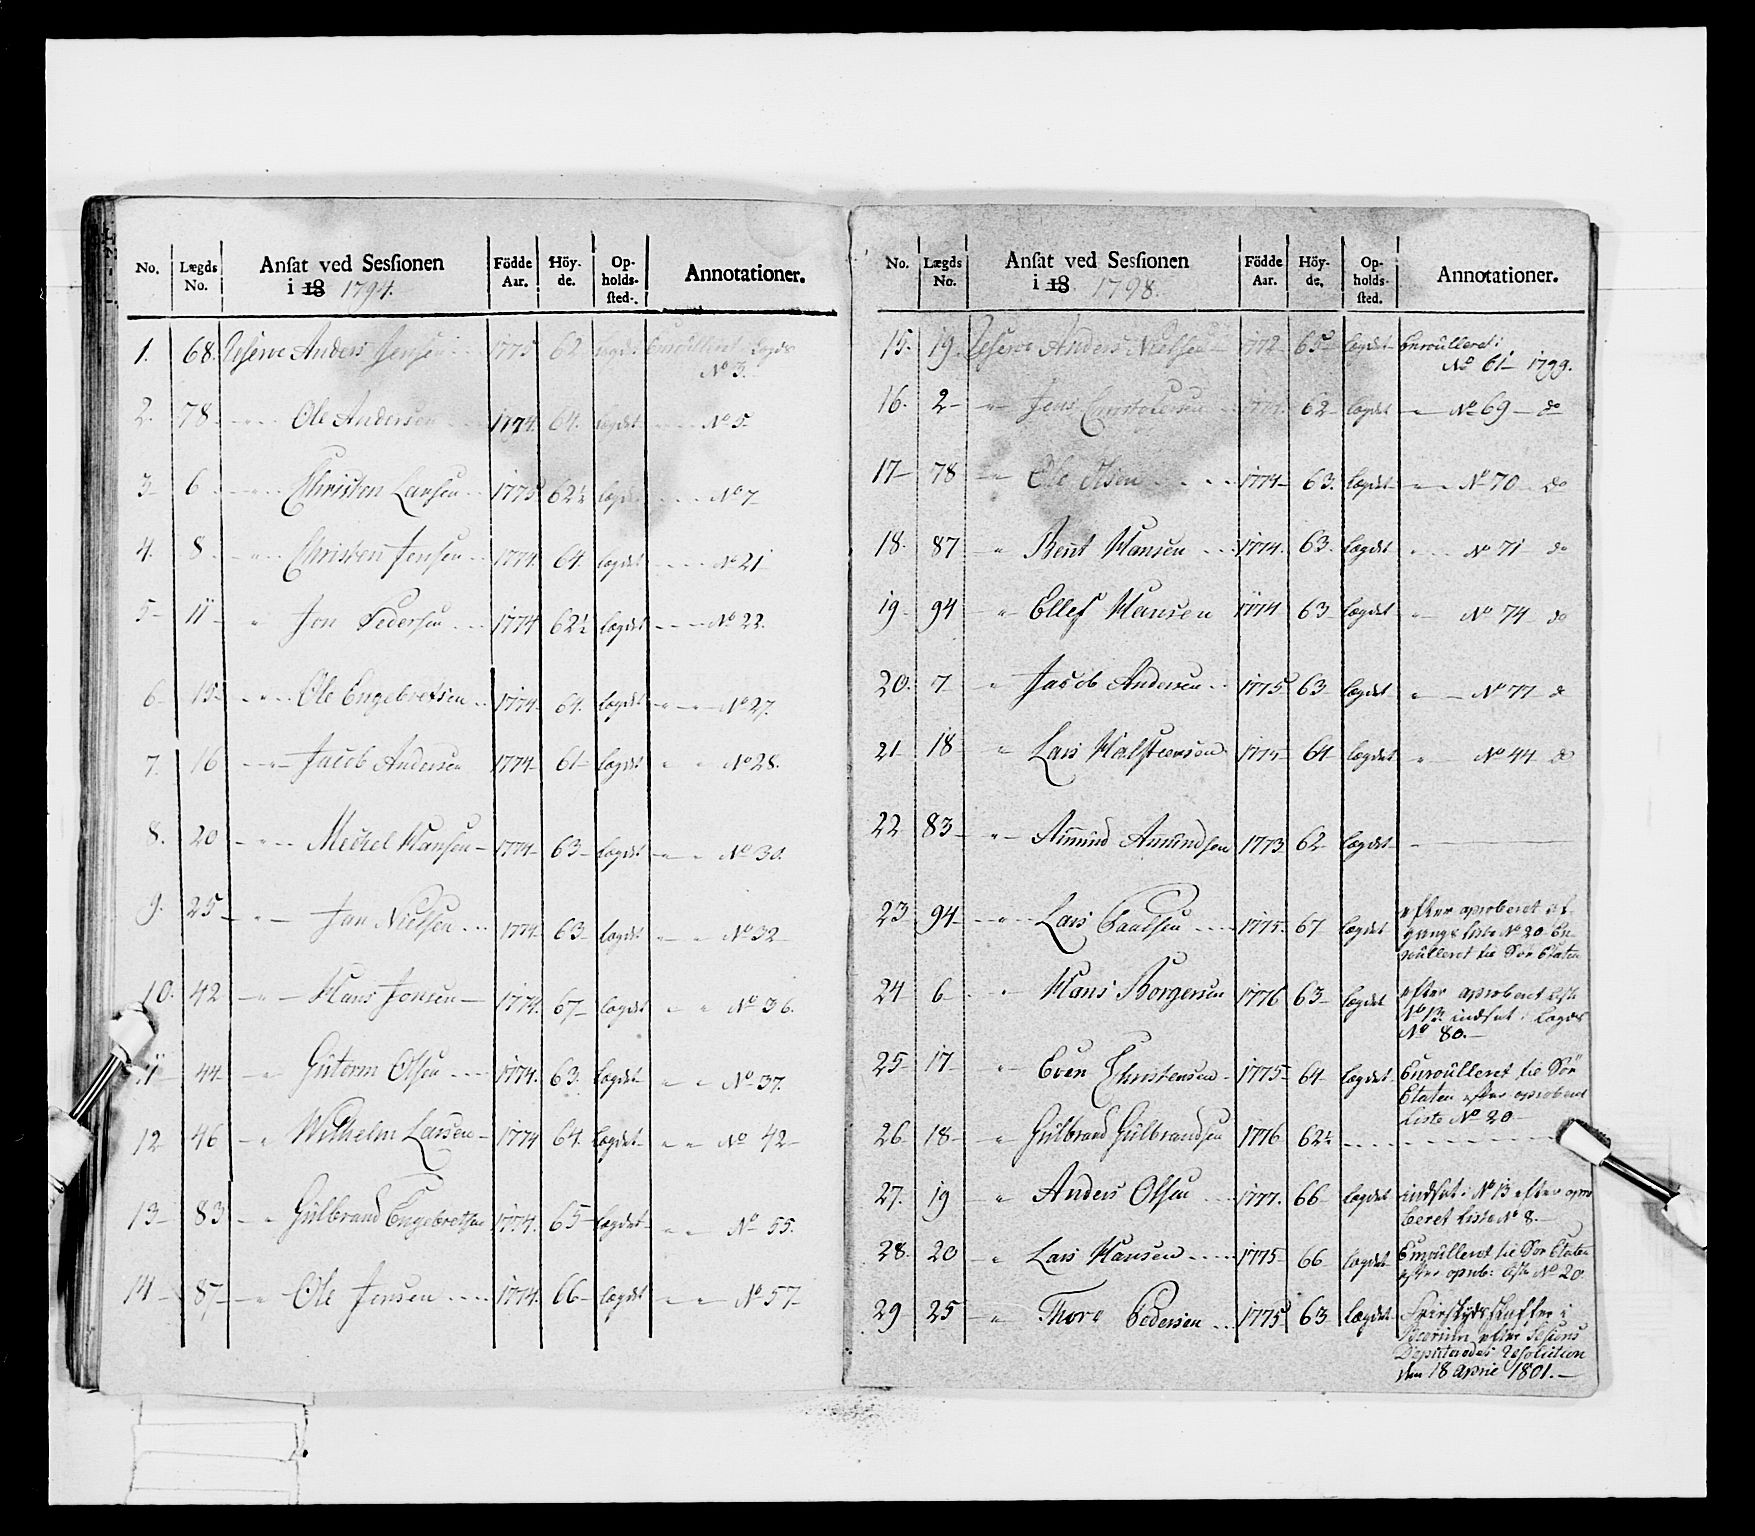 No. Lægds No. Ansat ved Sessionen i 18 1794. Födde Aar. Höy-de. Op-holds-sted. Annotationer.
1. 68. Reserve Anders Jensen 1775 62 lægdet Enroulleret Lægds
No 3.
2. 78 " Ole Andersen 1774. 64. lægdet " No 5
3 6 " Christen Larsen 1775 62½ lægdet No 7
4. 8 " Christen Jensen 1774. 64 lægdet No 21
5 11 " Jon Pedersen 1774 62½ lægdet No 22.
6 15 " Ole Engebretsen 1774 64. lægdet " No 27.
7. 16 " Jacob Andersen 1774 61 lægdet " No 28.
8. 20 " Mickel Hansen 1774 63 lægdet " No 30.
9. 25 " Jan Nielsen 1774. 63 lægdet " No 32
10. 42 " Hans Jensen 1774. 67 lægdet " " No 36.
11 44 " Gutorm Olsen 1774. 63. lægdet " " No 37.
12 46 " Wilhelm Larsen 1774 64. lægdet " " No 42
13 83 " Gulbrand Engebretsen 1774. 65 lægdet " " No 55.
14 87 " Ole Jensen 1774. 66 lægdet " " No 57
No. Lægds No. Ansat ved Sessionen i 18 1798. Födde Aar. Höy-de. Op-holds-sted. Annotationer.
15. 19. Reserve Anders Nielsen 1772 65 lægdet Enroulleret:
No 61 1799.
16. 2 " Jens 62 lægdet " No 69 do
17 78 " Ole Olsen 1774 63. lægdet " " No 70 do
18. 87 " Bent Hansen 1774. 63. lægdet " No 71 do
19 94 " Ellef Hansen 1774 63 lægdet " No 74 do
20. 7 " Jacob Andersen 1775 63 lægdet " No 77 do
21 18 " Lars Halsteensen 1775 64 lægdet " No 44 do
22 83 " Amund Amundsen 1773 62 lægdet "
23 94 " Lars Paulsen 1775. 67 lægdet efter aproberet af-
gangs Liste No 20 En-
roulleret til Söe Etaten
24 6 " Hans Borgersen 1776 63 lægdet efter aproberet Liste
No 13 indsat i Lægds
No 80.
25 17 " Even Christensen 1775 64 lægdet Enroulleret til Söe
Etaten efter aproberet
Liste No 20
26 18 " Gulbrand Gulbrandsen 1776 62½
27. 19 " Anders Olsen 1777. 66 lægdet indsat i No 13 efter apro
beret Liste No 8.
28. 20 " Lars Hansen 1775 66 lægdet Enroulleret til Söe Etaten
efter aprob: Liste No 20
29 25 " Thore Pedersen 1775 63 lægdet i
efter Sessions
Deputeredes Resolution
den 18 April 1801.